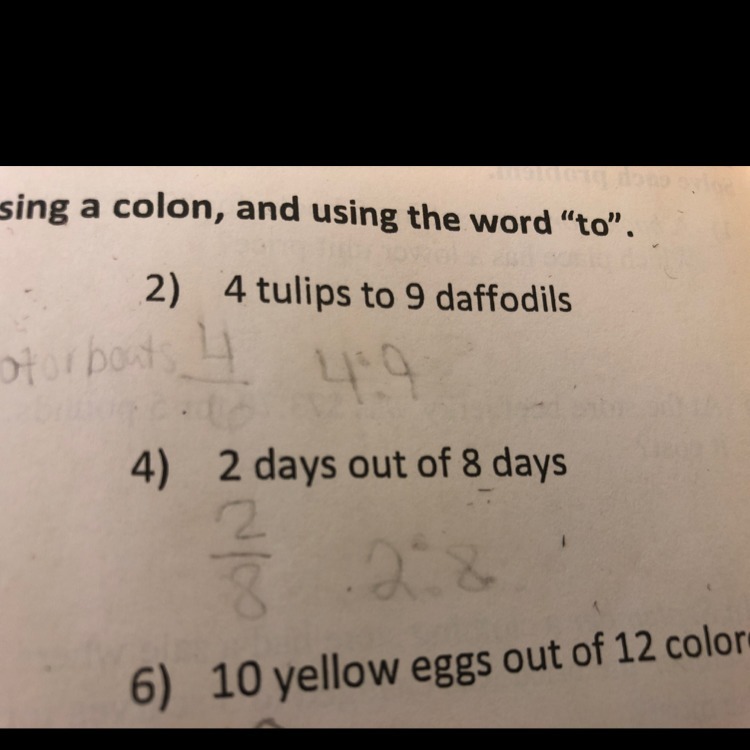 sing a colon, and using the word “to”.
2) 4 tulips to 9 daffodils
otorboats 4 4:9
4) 2 days out of 8 days
2
8 2:8
6) 10 yellow eggs out of 12 colore